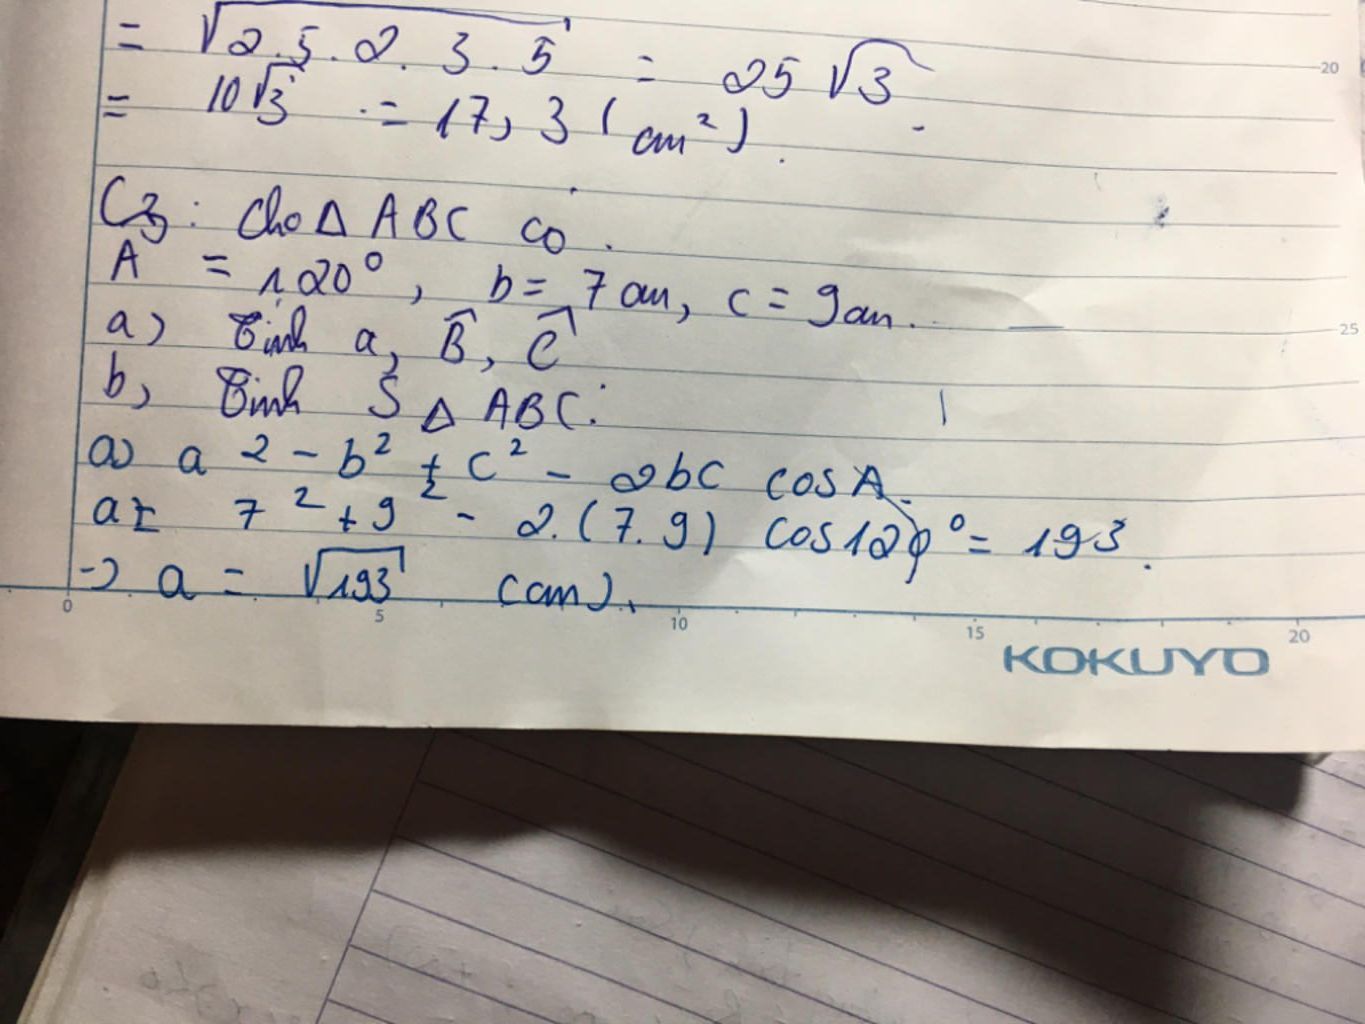 = √2.5.2.3.5 = 25√3
= 10√3 = 17,3 (cm²).
C3: Cho Δ ABC co.
A = 120°, b = 7cm, c = 9cm.
a) Tính a, B̂, Ĉ
b, Tính S Δ ABC.
a) a 2 - b² + c² - 2bc cosA.
a = 7² + 9² - 2.(7.9) cos120° = 193.
-> a = √193 (cm).
20
25
0 5 10 15 20
KOKUYO